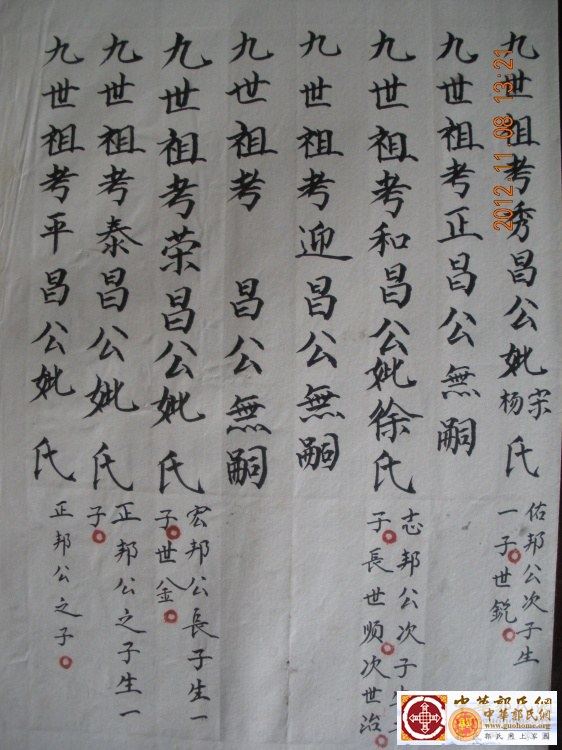 九世祖考秀昌公妣宗杨氏
佑邦公次子生
一子世銳
九世祖考正昌公無嗣
九世祖考和昌公妣徐氏
志邦公次子
子長世順次世治
九世祖考迎昌公無嗣
九世祖考 昌公無嗣
九世祖考荣昌公妣 氏
宏邦公長子生一
子世金
九世祖考泰昌公妣 氏
正邦公之子生一
子
九世祖考平昌公妣 氏
正邦公之子
2012.11.08 13:21
中華郭氏網
中華郭氏網
www.guohome.org
郭氏網上家園